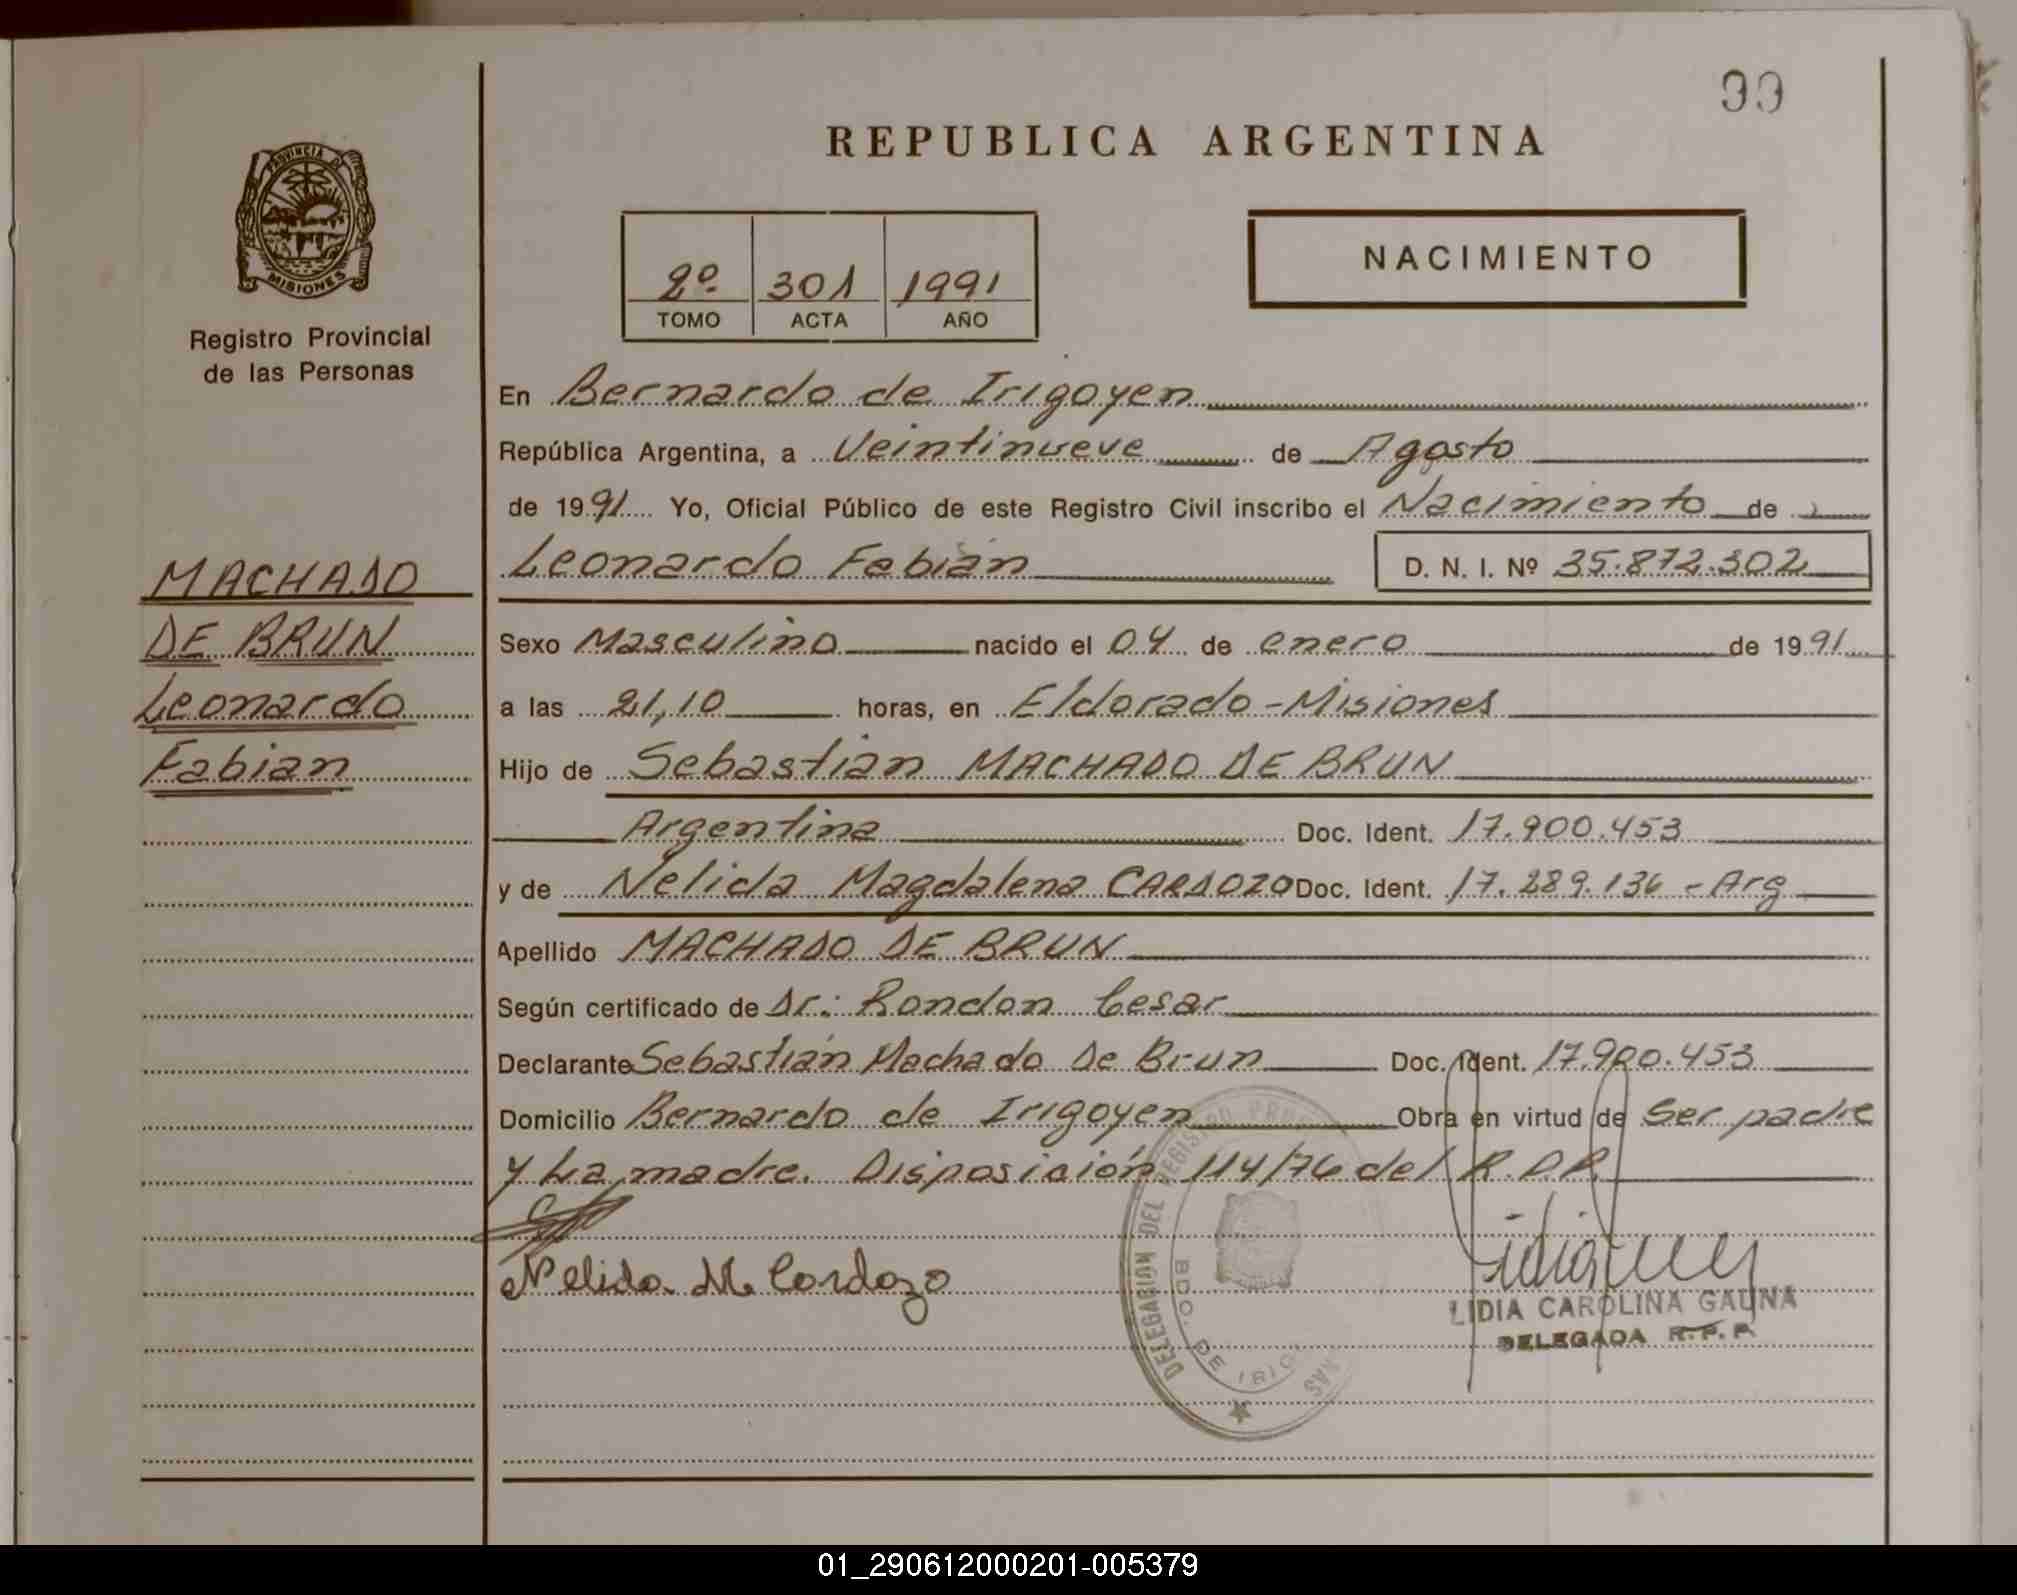 99
REPUBLICA ARGENTINA
PROVINCIA DE
MISIONES
Registro Provincial
de las Personas
2º 301 1991
TOMO ACTA AÑO
NACIMIENTO
En Bernardo de Irigoyen
República Argentina, a Veintinueve de Agosto
de 1991 Yo, Oficial Público de este Registro Civil inscribo el Nacimiento de
Leonardo Fabián D. N. I. Nº 35.872.302
MACHADO
DE BRUN
Leonardo
Fabian
Sexo Masculino nacido el 04 de enero de 1991
a las 21,10 horas, en Eldorado-Misiones
Hijo de Sebastián MACHADO DE BRUN
Argentina Doc. Ident. 17.900.453
y de Nelida Magdalena CARDOZO Doc. Ident. 17.289.136 - Arg
Apellido MACHADO DE BRUN
Según certificado de Dr: Rondon Cesar
Declarante Sebastián Machado De Brun Doc. Ident. 17.900.453
Domicilio Bernardo de Irigoyen Obra en virtud de Ser padre
y La madre. Disposición 114/76 del R.P.P.
Nelida M. Cardozo
DELEGACION DEL REGISTRO
BDO. DE IRIG
LIDIA CAROLINA GAUNA
DELEGADA R.P.P.
01_290612000201-005379